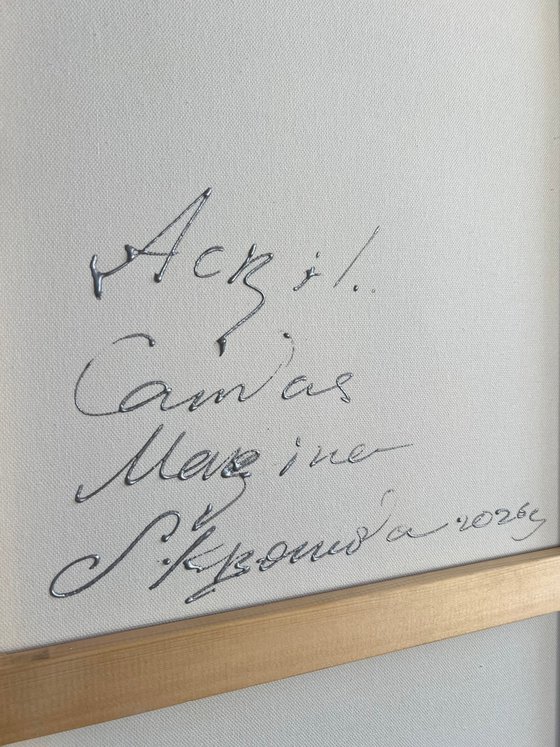 Acril.
Canvas
Marina
Skromova 2026г